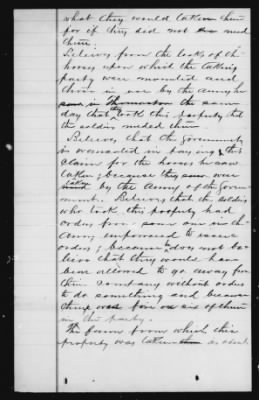 what they would take them
for if they did not need
them.
Believes from the looks of the
horses upon which the taking
party were mounted and
those in use by the army he
saw in Thomaston the same
day that they took this property that
the soldiers needed them
Believes that the Government
is warranted in paying this
claim for the horses he saw
taken; because they were
taken by the Army of the Govern-
ment. Believes that the soldiers
who took this property had
orders from some one in the
Army empowered to issue
orders; because does not be-
lieve that they would have
been allowed to go away from
their company without orders
to do something and because
there were five or six of them
in the party.
The farm from which this
property was taken is about